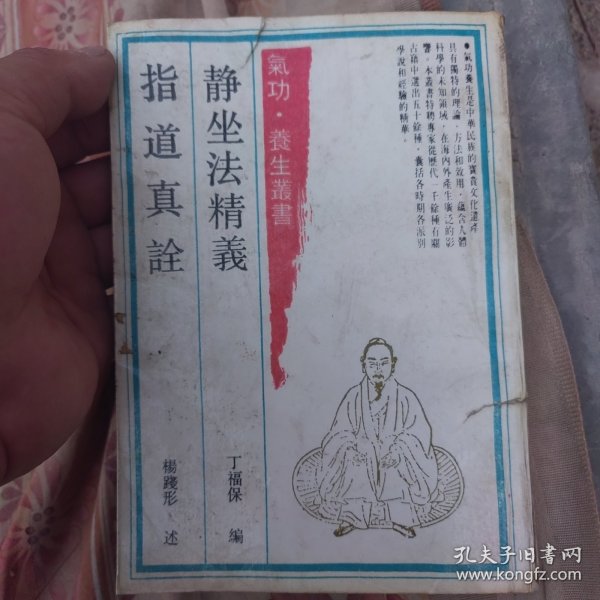 ●氣功養生是中華民族的寶貴文化遺產
具有獨特的理論、方法和效用，蘊含人體
科學的未知領域，在海內外產生廣泛的影
響。本叢書特聘專家從歷代一千餘種有關
古籍中選出五十餘種，囊括各時期各派別
學說和經驗的精華。
氣功·養生叢書
静坐法精義
丁福保 編
指道真詮
楊踐形 述
孔夫子旧書网
www.kongfz.com